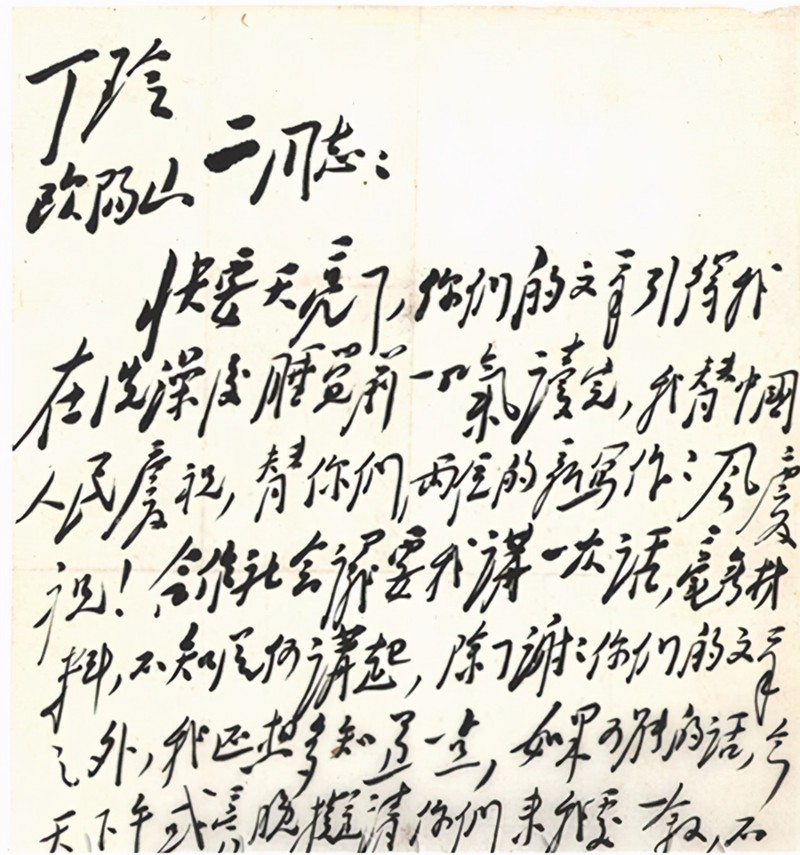 丁玲
欧阳山 二同志:
快要天亮了,你们的文章引得我
在洗澡後睡覺前一口氣讀完,我替中國
人民慶祝,替你们两位的新写作〻风慶
祝!合作社会議要我講一次話,毫無材
料,不知從何講起,除了謝〻你们的文章
之外,我还想多知道一点,如果可能的話,今
天下午或傍晚擬請你们来我處一敘,不